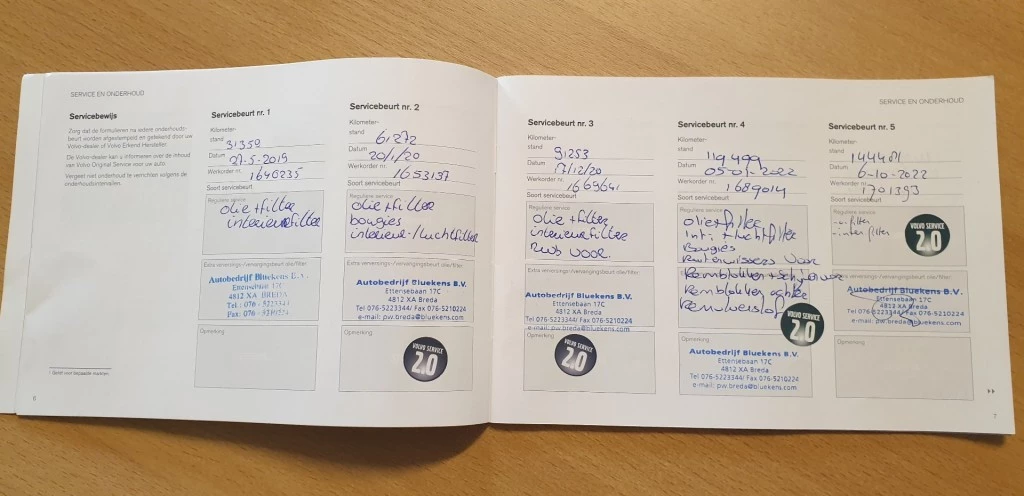 SERVICE EN ONDERHOUD
Servicebewijs
Zorg dat de formulieren na iedere onderhouds-
beurt worden afgestempeld en getekend door uw
Volvo-dealer of Volvo Erkend Hersteller.
De Volvo-dealer kan u informeren over de inhoud
van Volvo Original Service voor uw auto.
Vergeet niet onderhoud te verrichten volgens de
onderhoudsintervallen.
1 Geldt voor bepaalde markten.
6
Servicebeurt nr. 1
Kilometer-
stand 31352
Datum 27-5-2019
Werkorder nr. 1646235
Soort servicebeurt
Reguliere service
olie+filter
interieurfilter
Extra verversings-/vervangingsbeurt olie/filter:
Autobedrijf Bluekens B.V.
Ettensebaan 17C
4812 XA BREDA
Tel.: 076 - 5223344
Fax: 076 - 5210224
Opmerking
Servicebeurt nr. 2
Kilometer-
stand 61272
Datum 20/1/20
Werkorder nr. 1653157
Soort servicebeurt
Reguliere service
olie+filter
bougies
interieur-/luchtfilter
Extra verversings-/vervangingsbeurt olie/filter:
Autobedrijf Bluekens B.V.
Ettensebaan 17C
4812 XA Breda
Tel 076-5223344/ Fax 076-5210224
e-mail: pw.breda@bluekens.com
Opmerking
VOLVO SERVICE
2.0
Servicebeurt nr. 3
Kilometer-
stand 91253
Datum 17/12/20
Werkorder nr. 1669641
Soort servicebeurt
Reguliere service
olie+filter
interieurfilter
Rwb voor.
Extra verversings-/vervangingsbeurt olie/filter:
Autobedrijf Bluekens B.V.
Ettensebaan 17C
4812 XA Breda
Tel 076-5223344/ Fax 076-5210224
e-mail: pw.breda@bluekens.com
Opmerking
VOLVO SERVICE
2.0
Servicebeurt nr. 4
Kilometer-
stand 119499
Datum 05-01-2022
Werkorder nr. 1689014
Soort servicebeurt
Reguliere service
olie+filter
Int. + luchtfilter
Bougies
Ruitenwissers voor
Remblokken+schijven voor
Remblokken achter
Remvloeistof
VOLVO SERVICE
2.0
Autobedrijf Bluekens B.V.
Ettensebaan 17C
4812 XA Breda
Tel 076-5223344/ Fax 076-5210224
e-mail: pw.breda@bluekens.com
SERVICE EN ONDERHOUD
Servicebeurt nr. 5
Kilometer-
stand
Datum 6-10-2022
Werkorder nr. 1701393
Soort servicebeurt
Reguliere service
filter
filter
VOLVO SERVICE
2.0
Extra verversings-/vervangingsbeurt olie/filter:
Autobedrijf Bluekens B.V.
Ettensebaan 17C
4812 XA Breda
Tel 076-5223344/ Fax 076-5210224
e-mail: pw.breda@bluekens.com
Opmerking
7